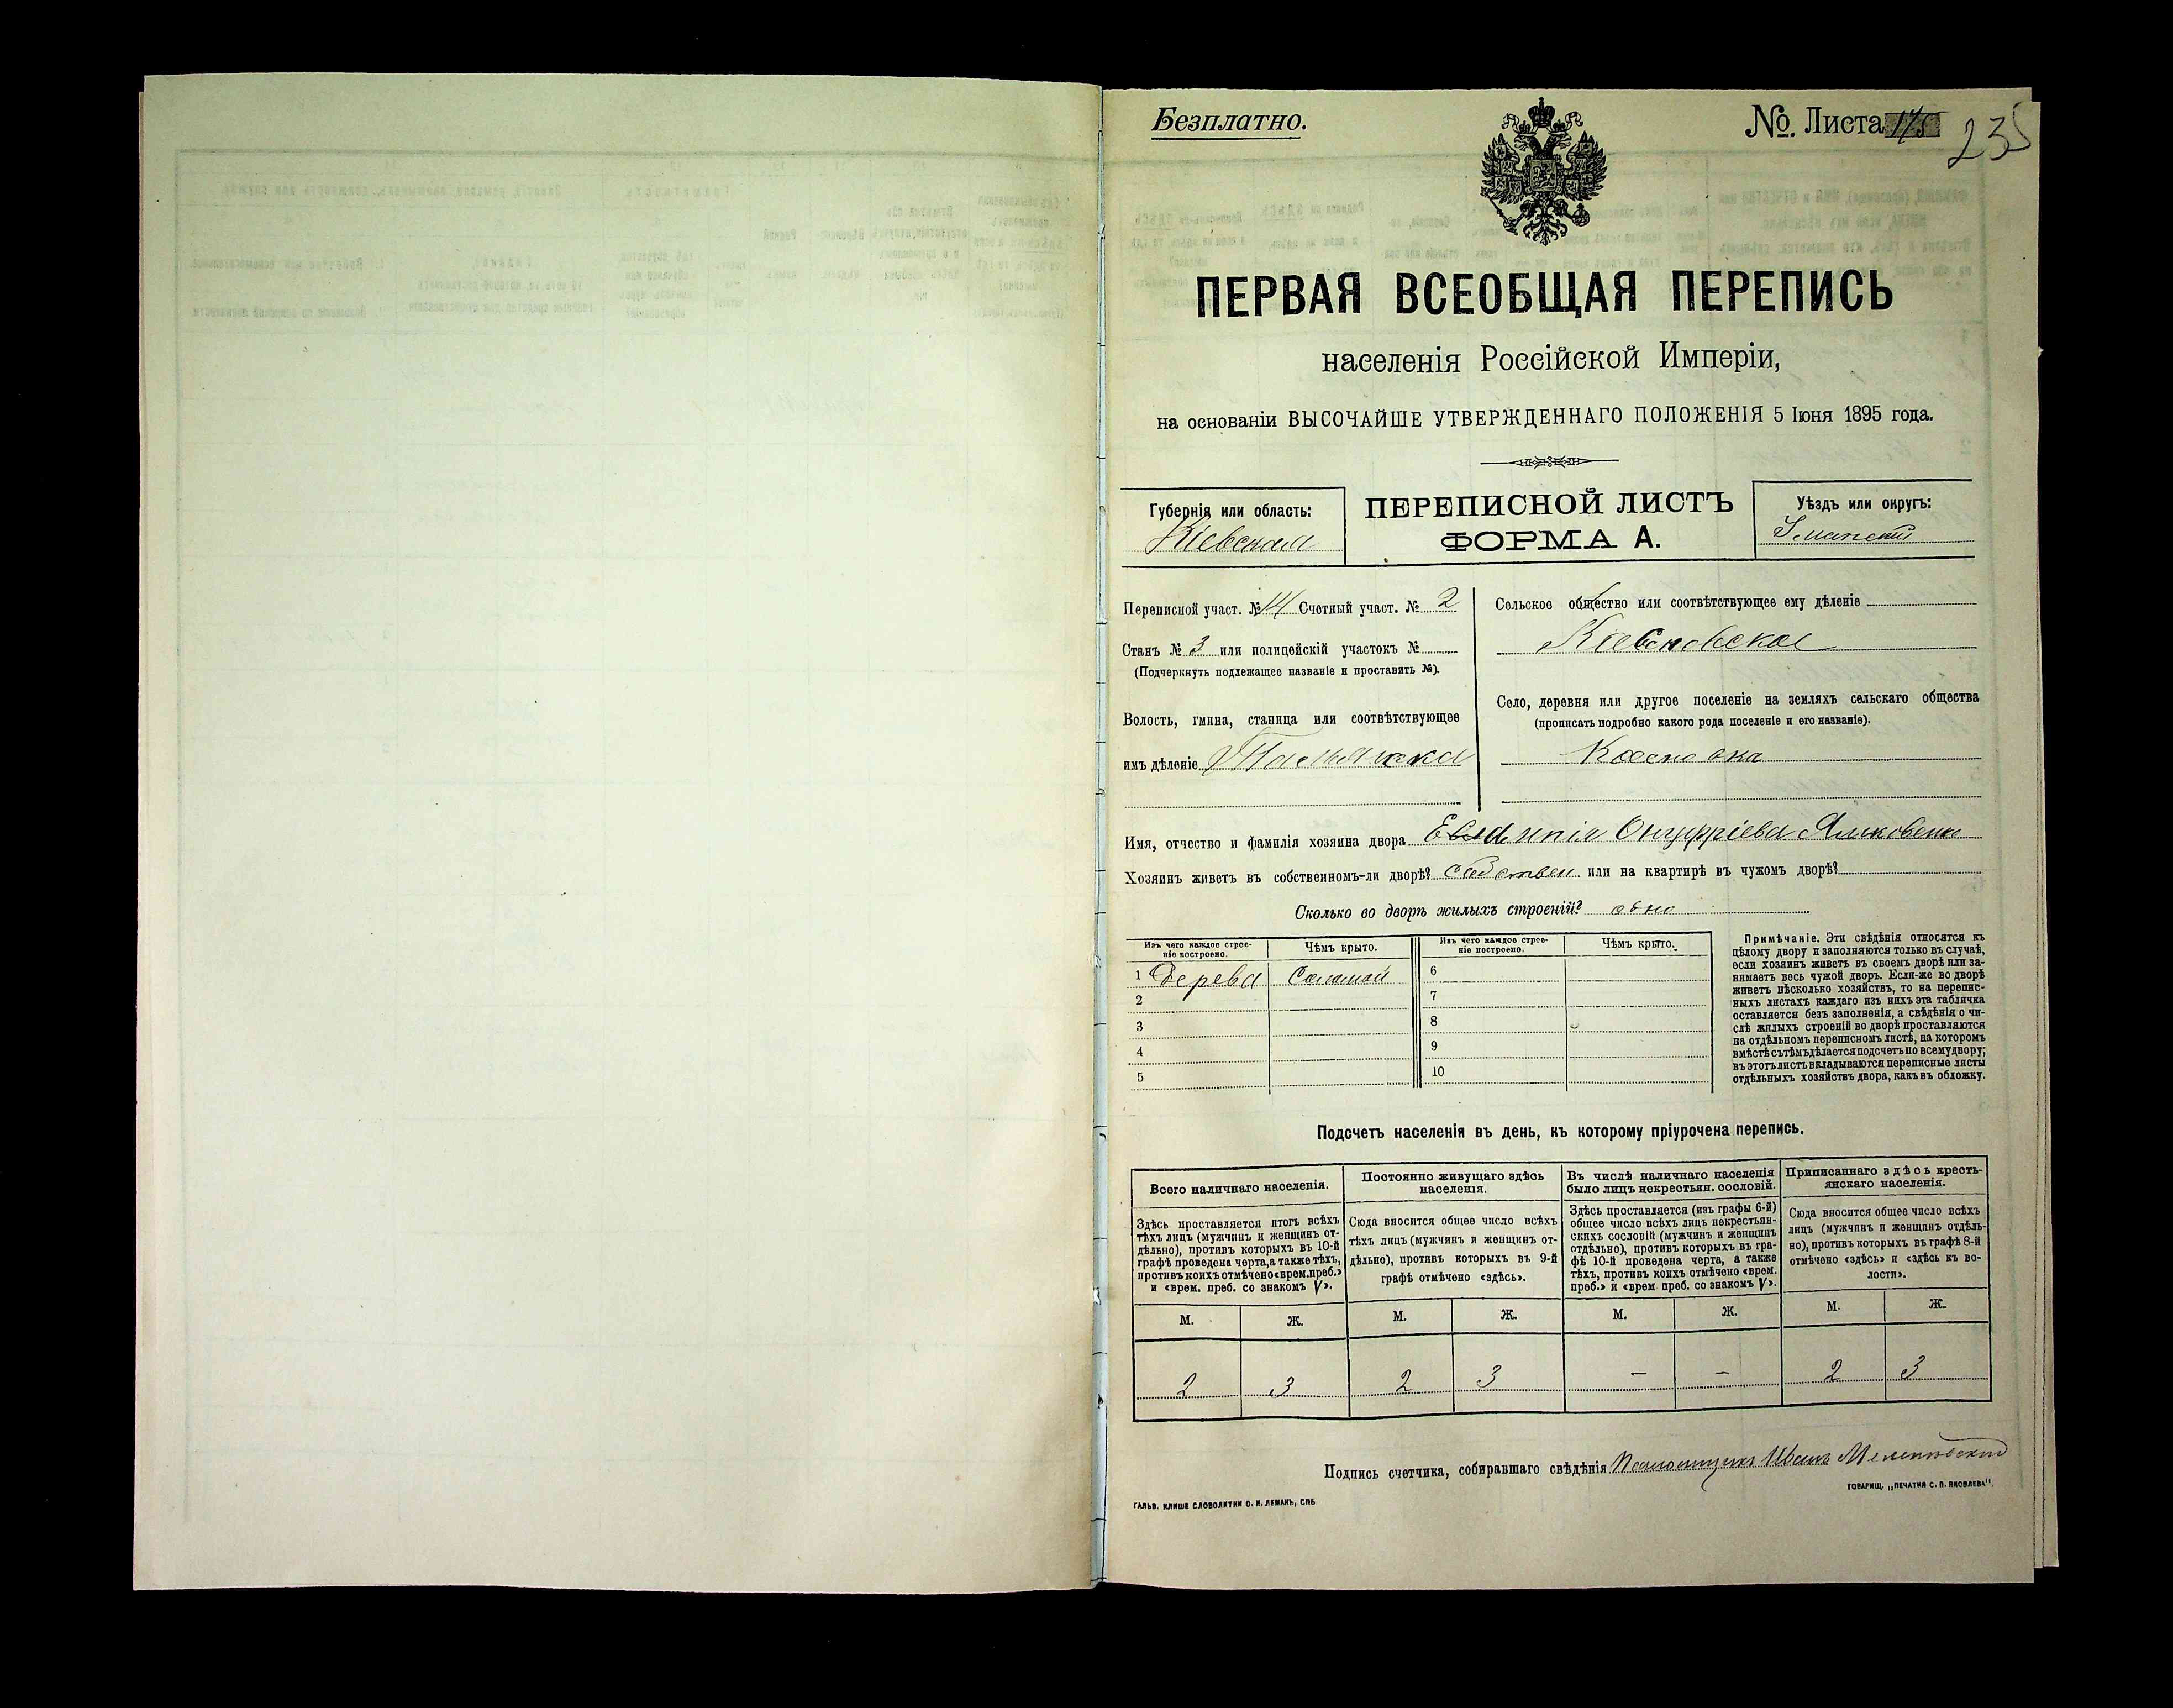 Безплатно.
№. Листа 175
235
ПЕРВАЯ ВСЕОБЩАЯ ПЕРЕПИСЬ
населенія Россійской Имперіи,
на основаніи ВЫСОЧАЙШЕ УТВЕРЖДЕННАГО ПОЛОЖЕНІЯ 5 Іюня 1895 года.
Губернія или область:
Кіевская
ПЕРЕПИСНОЙ ЛИСТЪ
ФОРМА А.
Уѣздъ или округъ:
Уманскій
Переписной участ. № 14 Счетный участ. № 2
Станъ № 3 или полицейскій участокъ №
(Подчеркнуть подлежащее названіе и проставить №).
Волость, гмина, станица или соотвѣтствующее
имъ дѣленіе
Сельское общество или соотвѣтствующее ему дѣленіе
Село, деревня или другое поселеніе на земляхъ сельскаго общества
(прописать подробно какого рода поселеніе и его названіе).
Имя, отчество и фамилія хозяина двора Онуфріева
Хозяинъ живетъ въ собственномъ-ли дворѣ? собствен или на квартирѣ въ чужомъ дворѣ?
Сколько во дворѣ жилыхъ строеній? одно
Изъ чего каждое строе-
ніе построено.
Чѣмъ крыто.
Изъ чего каждое строе-
ніе построено.
Чѣмъ крыто.
1 Дерева Соломой
2
3
4
5
6
7
8
9
10
Примѣчаніе. Эти свѣдѣнія относятся къ
цѣлому двору и заполняются только въ случаѣ,
если хозяинъ живетъ въ своемъ дворѣ или за-
нимаетъ весь чужой дворъ. Если-же во дворѣ
живетъ нѣсколько хозяйствъ, то на перепис-
ныхъ листахъ каждаго изъ нихъ эта табличка
оставляется безъ заполненія, а свѣдѣнія о чи-
слѣ жилыхъ строеній во дворѣ проставляются
на отдѣльномъ переписномъ листѣ, на которомъ
вмѣстѣ съ тѣмъ дѣлается подсчетъ по всему двору;
въ этотъ листъ вкладываются переписные листы
отдѣльныхъ хозяйствъ двора, какъ въ обложку.
Подсчетъ населенія въ день, къ которому пріурочена перепись.
Всего наличнаго населенія.
Здѣсь проставляется итогъ всѣхъ
тѣхъ лицъ (мужчинъ и женщинъ от-
дѣльно), противъ которыхъ въ 10-й
графѣ проведена черта, а также тѣхъ,
противъ коихъ отмѣчено «врем. преб.»
и «врем. преб. со знакомъ V».
Постоянно живущаго здѣсь
населенія.
Сюда вносится общее число всѣхъ
тѣхъ лицъ (мужчинъ и женщинъ от-
дѣльно), противъ которыхъ въ 9-й
графѣ отмѣчено «здѣсь».
Въ числѣ наличнаго населенія
было лицъ некрестьян. сословій.
Здѣсь проставляется (изъ графы 6-й)
общее число всѣхъ лицъ некрестьян-
скихъ сословій (мужчинъ и женщинъ
отдѣльно), противъ которыхъ въ гра-
фѣ 10-й проведена черта, а также
тѣхъ, противъ коихъ отмѣчено «врем.
преб.» и «врем преб. со знакомъ V».
Приписаннаго здѣсь кресть-
янскаго населенія.
Сюда вносится общее число всѣхъ
лицъ (мужчинъ и женщинъ отдѣль-
но), противъ которыхъ въ графѣ 8-й
отмѣчено «здѣсь» и «здѣсь къ во-
лости».
М. Ж. М. Ж. М. Ж. М. Ж.
2 3 2 3 — — 2 3
Подпись счетчика, собиравшаго свѣдѣнія Иванъ
ГАЛЬВ. КЛИШЕ СЛОВОЛИТНИ О. И. ЛЕМАНЪ, СПБ
ТОВАРИЩ. „ПЕЧАТНЯ С. П. ЯКОВЛЕВА".